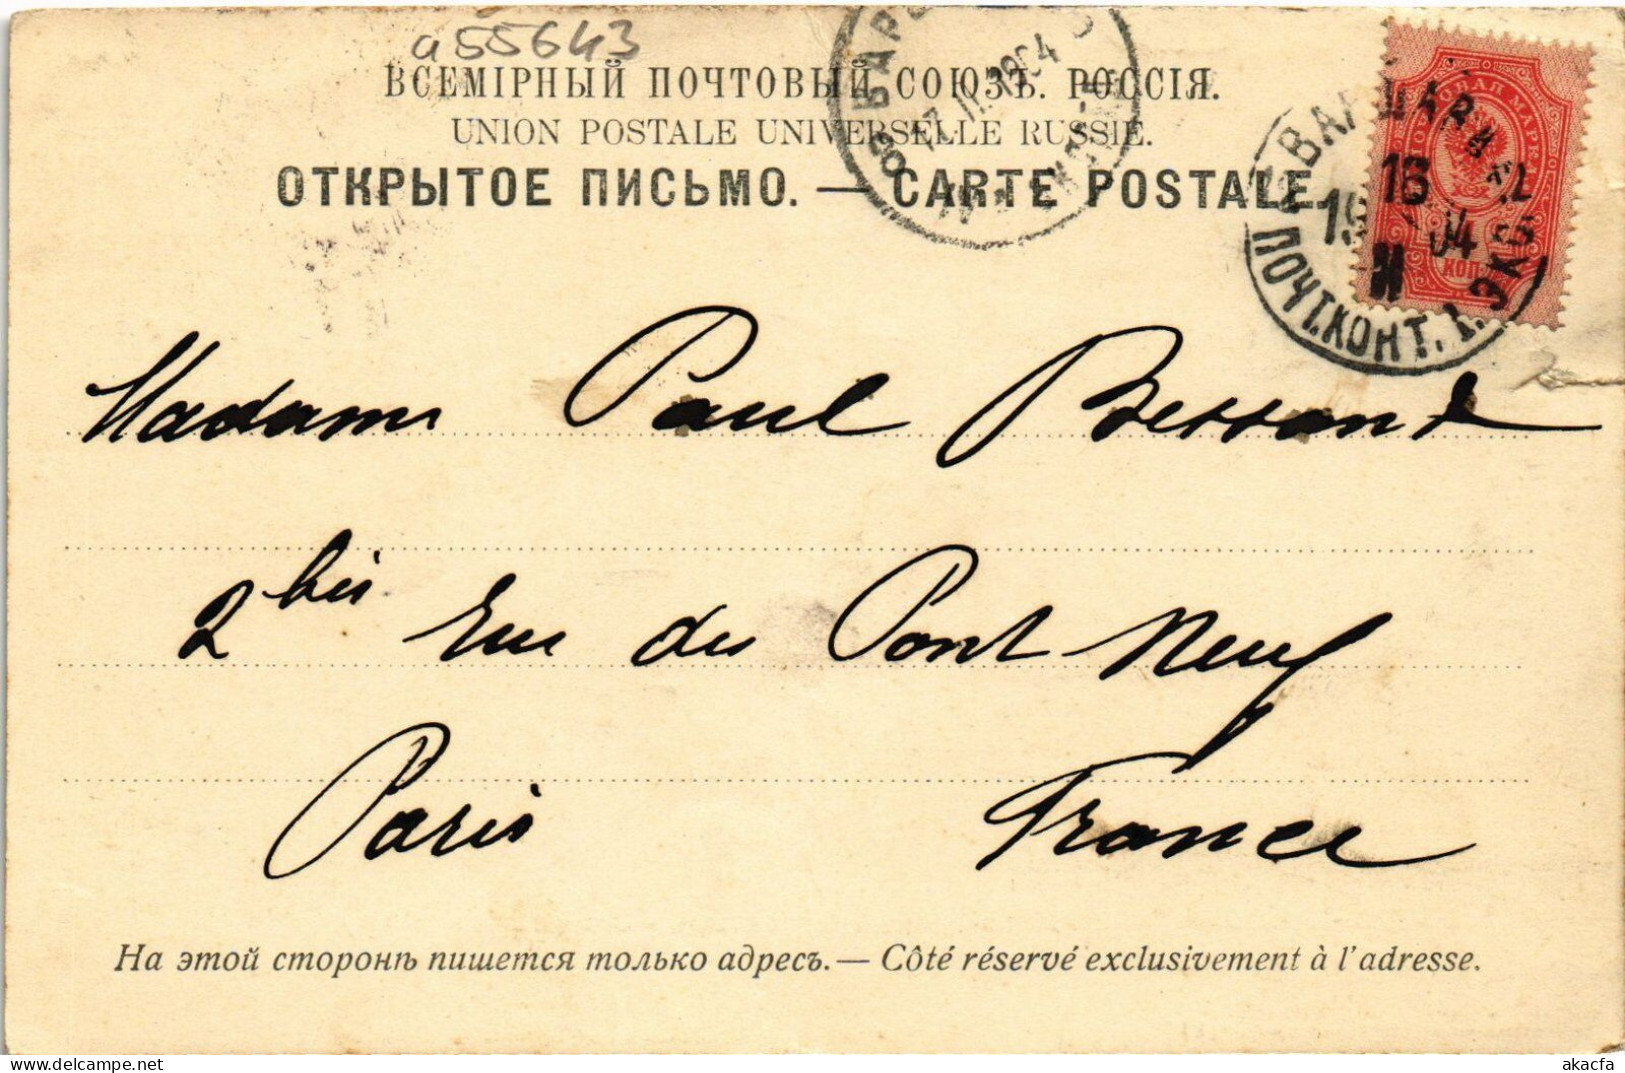 a55643
ВСЕМІРНЫЙ ПОЧТОВЫЙ СОЮЗЪ. РОССІЯ.
UNION POSTALE UNIVERSELLE RUSSIE.
ОТКРЫТОЕ ПИСЬМО. — CARTE POSTALE.
ПОЧТ.КОНТ. 1. ЭКС
16
04
КОП.
1904
Madame Paul Bessand
2 bis Rue du Pont Neuf
Paris France
На этой сторонѣ пишется только адресъ. — Côté réservé exclusivement à l'adresse.
akacfa